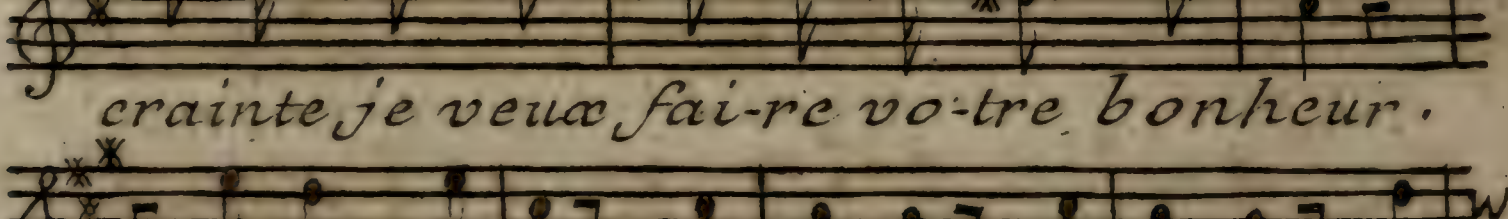 crainte je veux fai-re vo-tre bonheur.